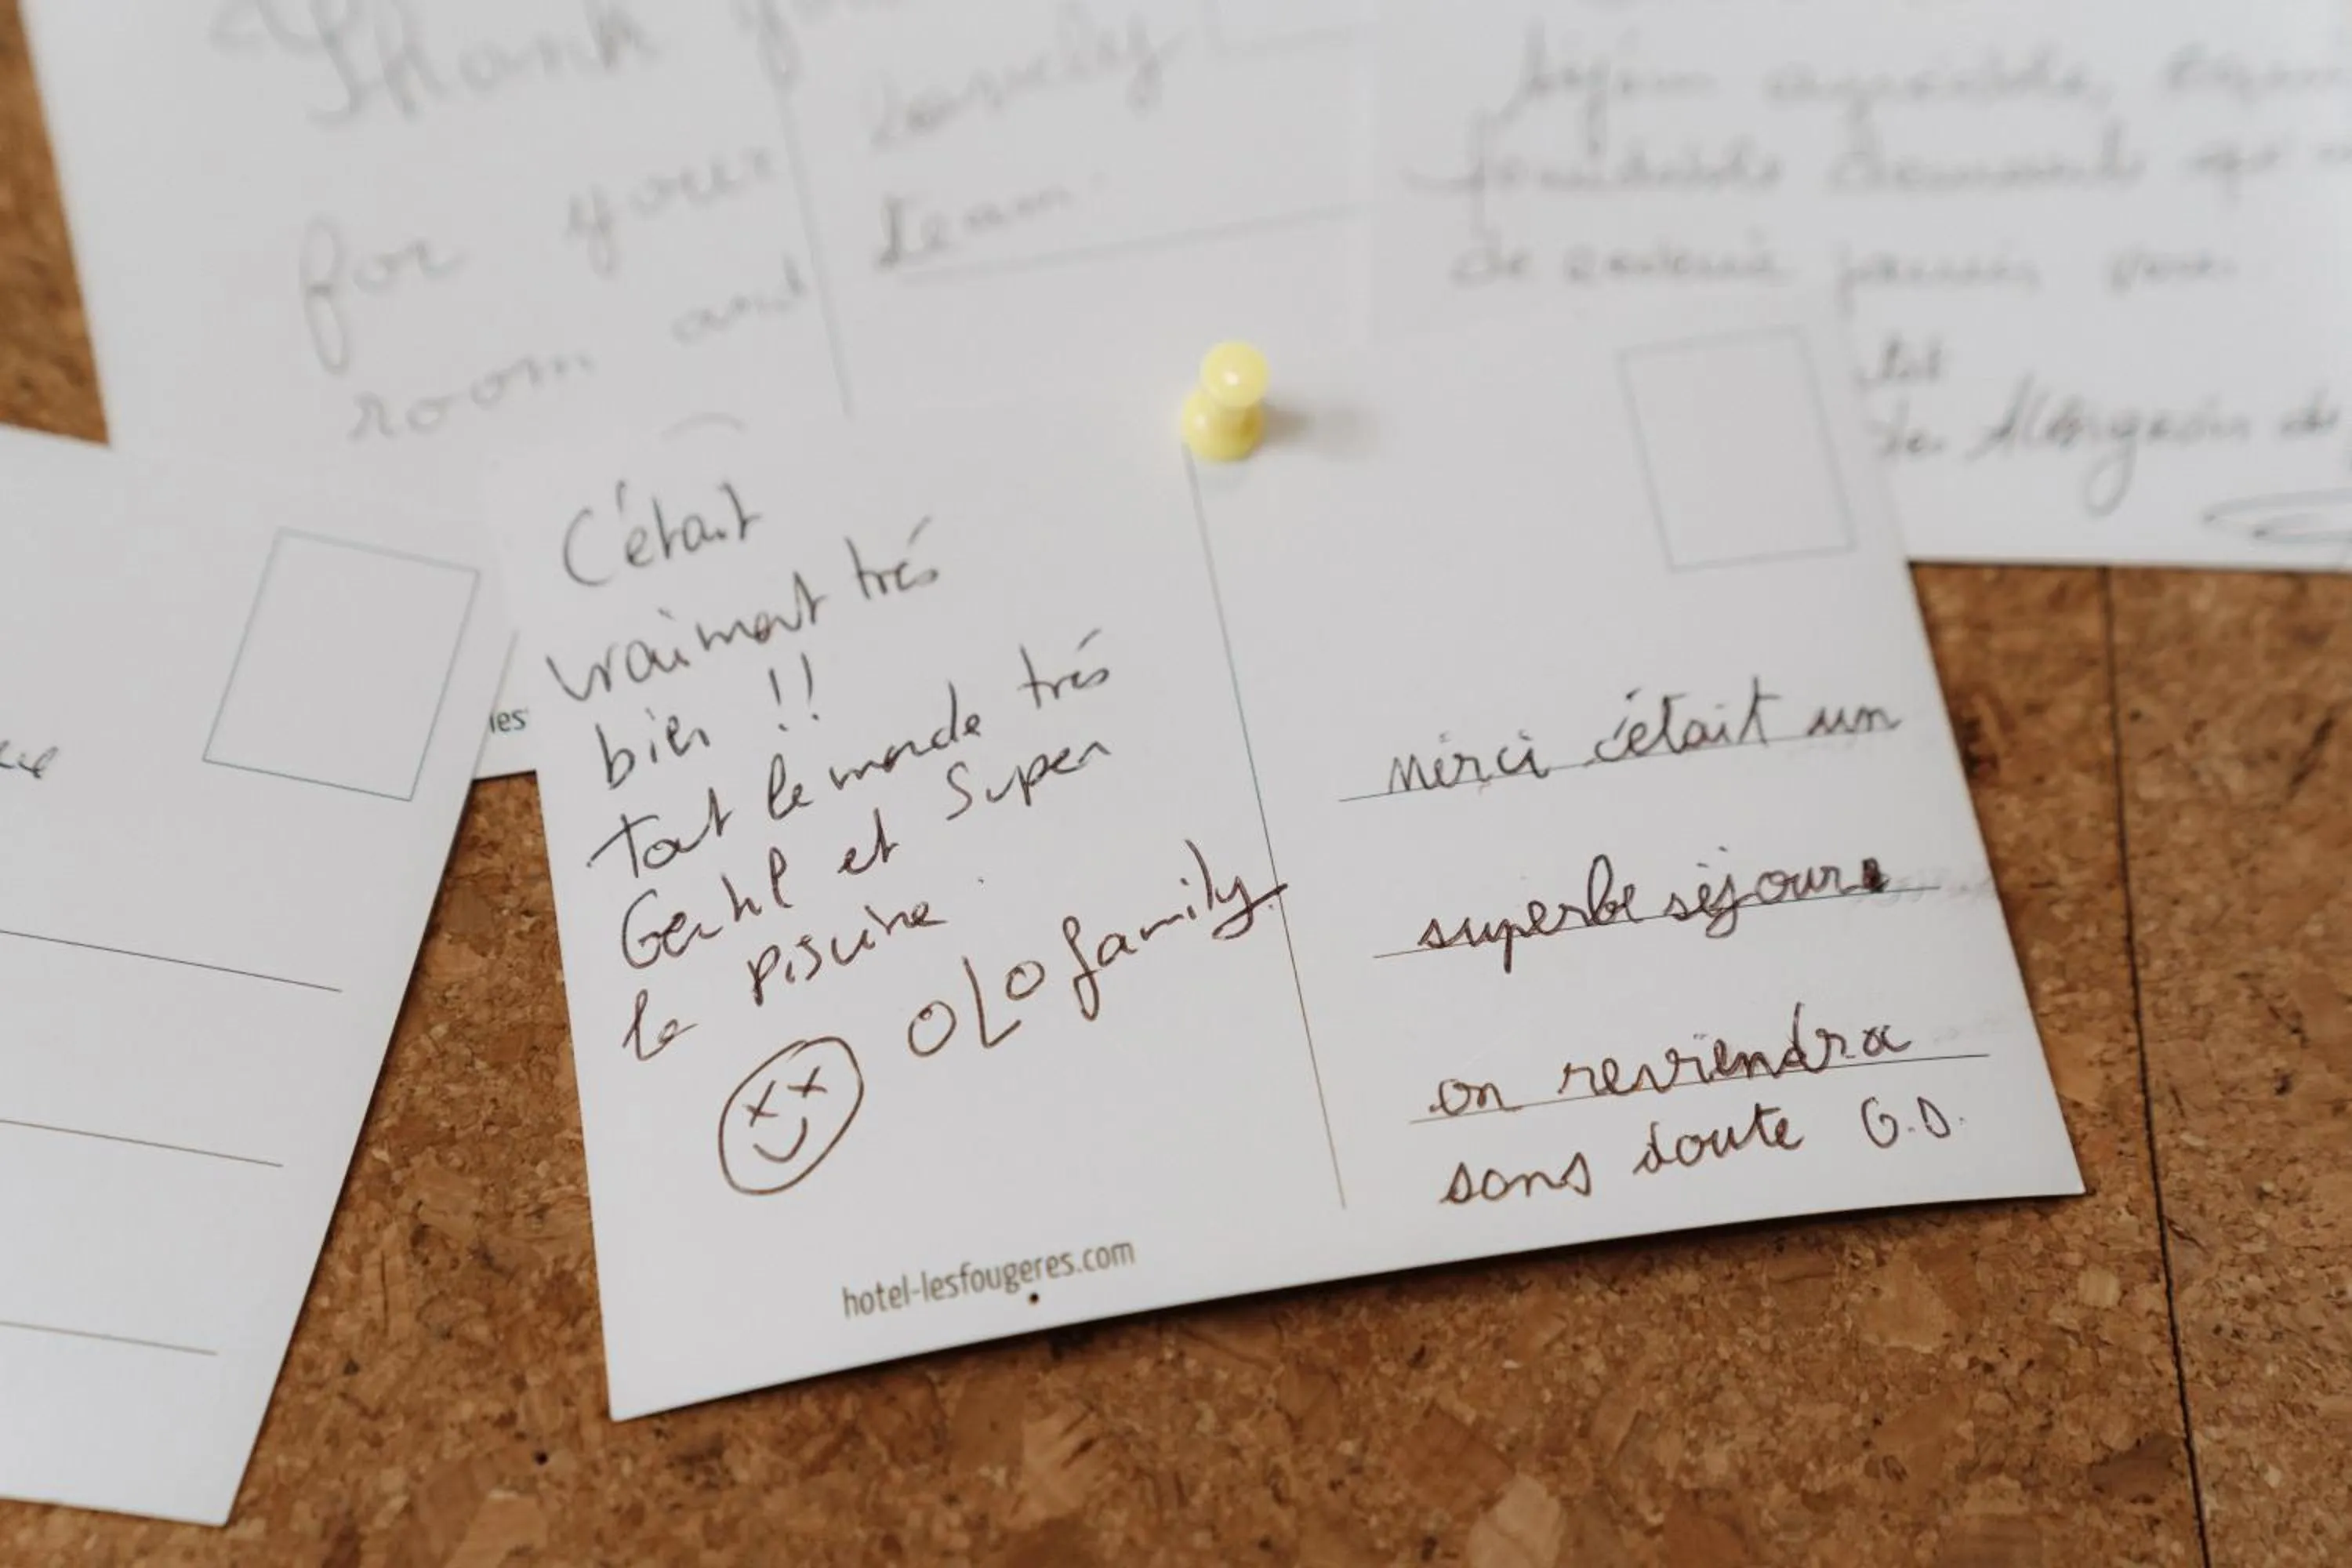 Thank you
for your
room and
lovely
team.
Séjour agréable,
formidable
de
C'était
vraiment trés
bien !!
Tout le monde trés
Gentil et Super
la piscine.
OLO family
merci c'était un
superbe séjour
on reviendra
sans doute G.D.
hotel-lesfougeres.com
les